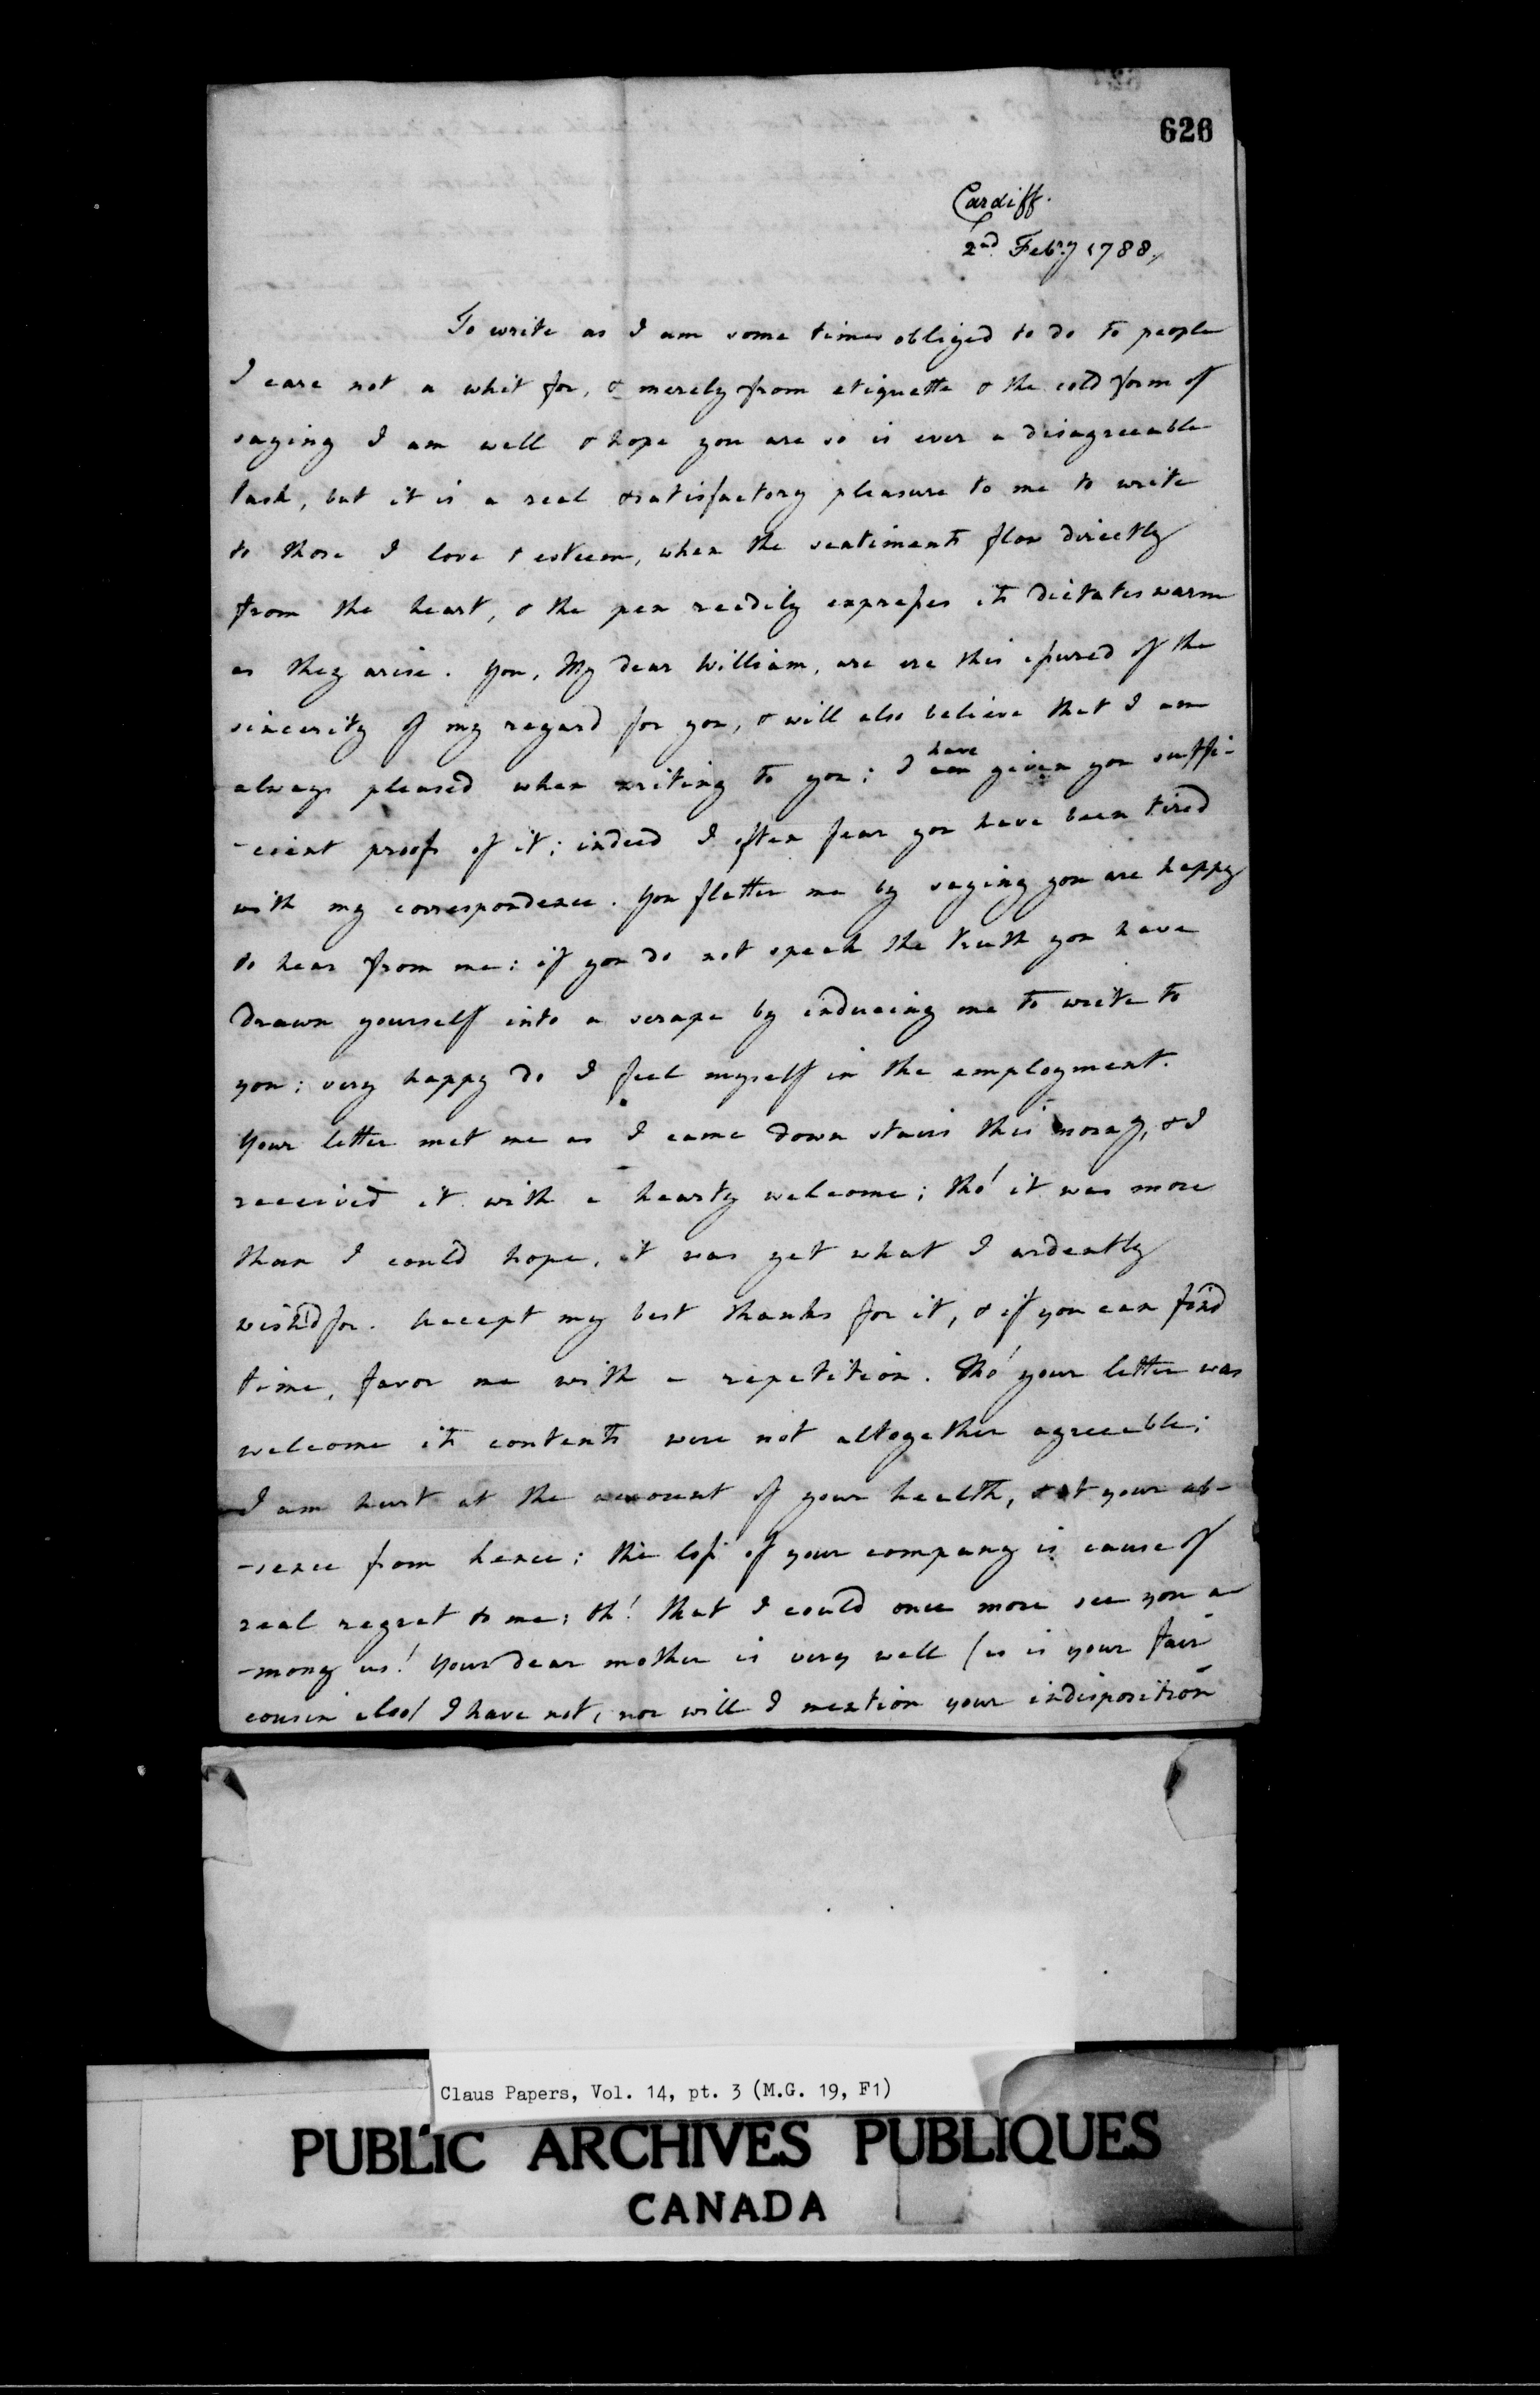 626
Cardiff.
2nd Feby. 1788,
To write as I am some times obliged to do to people
I care not a whit for, & merely from etiquette & the cold form of
saying I am well & hope you are so is ever a disagreeable
task, but it is a real & satisfactory pleasure to me to write
to those I love & esteem, when the sentiments flow directly
from the heart, & the pen readily expresses its dictates warm
as they arise. You, My dear William, are ere this assured of the
sincerity of my regard for you, & will also believe that I am
always pleased when writing to you: I have given you suffi-
-cient proofs of it; indeed I often fear you have been tired
with my correspondence. You flatter me by saying you are happy
to hear from me: if you do not speak the truth you have
drawn yourself into a scrape by inducing me to write to
you: very happy do I feel myself in the employment.
Your letter met me as I came down stairs this morng, & I
received it with a hearty welcome; tho' it was more
than I could hope, it was yet what I ardently
wish'd for. Accept my best thanks for it, & if you can find
time, favor me with a repetition. Tho' your letter was
welcome its contents were not altogether agreeable;
I am hurt at the account of your health, & at your ab-
-sence from hence; the loss of your company is cause of
real regret to me; Oh! that I could once more see you a-
-mong us! Your dear mother is very well (as is your fair
cousin also) I have not, nor will I mention your indisposition
Claus Papers, Vol. 14, pt. 3 (M.G. 19, F1)
PUBLIC ARCHIVES PUBLIQUES
CANADA